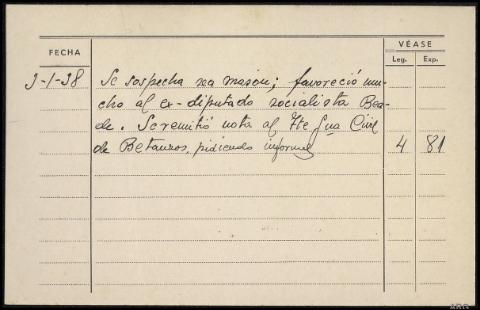 FECHA
VÉASE
Leg. Exp.
3-1-38 Se sospecha sea masón; favoreció mu-
cho al ex-diputado socialista Bea-
de. Se remitió nota al Tte Gua Civil
de Betanzos, pidiendo informes 4 81